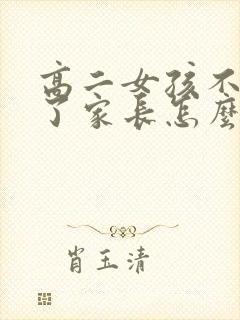 高二女孩不
了家长怎麼
肖玉清